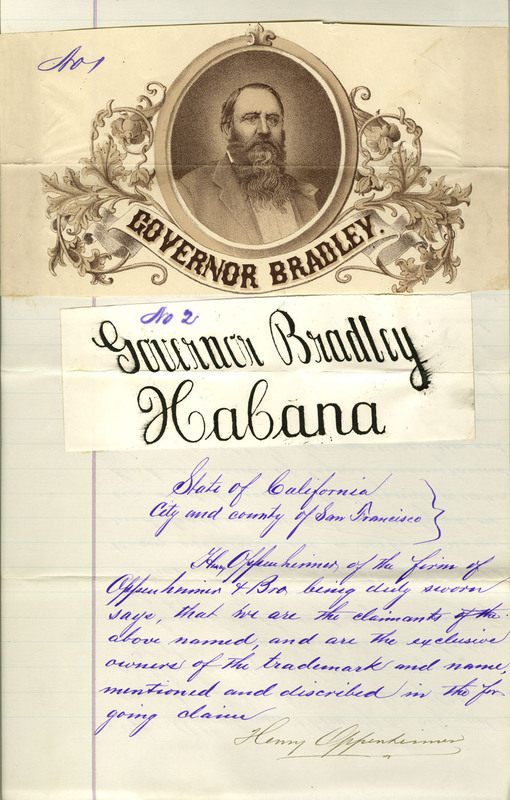 No 1
GOVERNOR BRADLEY.
No 2
Governor Bradley
Habana
State of California
City and county of San Francisco
Henry Oppenheimer, of the firm of
Oppenheimer & Bro, being duly sworn
says, that we are the claimants of the
above named, and are the exclusive
owners of the trademark and name,
mentioned and discribed in the for
going claim
Henry Oppenheimer